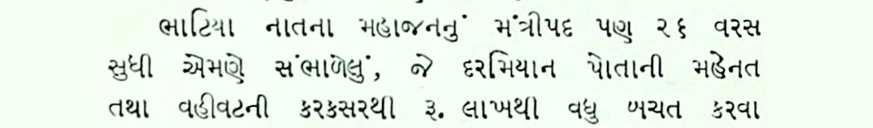 ભાટિયા નાતના મહાજનનું મંત્રીપદ પણ ૨૬ વરસ
સુધી એમણે સંભાળેલું, જે દરમિયાન પોતાની મહેનત
તથા વહીવટની કરકસરથી રૂ. લાખથી વધુ બચત કરવા